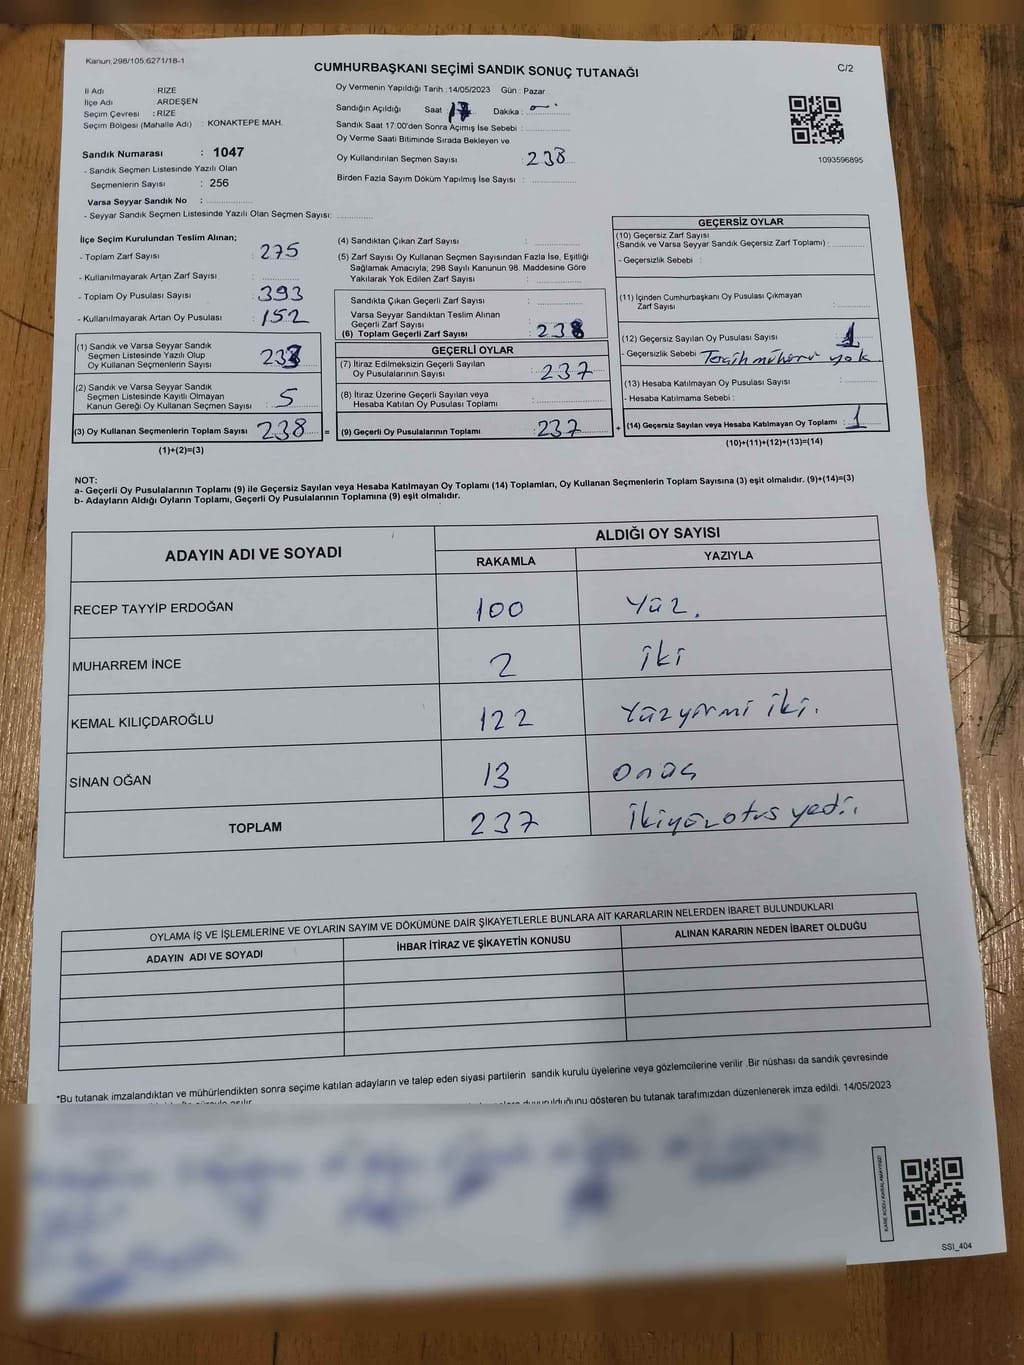 Kanun:298/105;6271/18-1
CUMHURBAŞKANI SEÇİMİ SANDIK SONUÇ TUTANAĞI
C/2
İl Adı : RİZE
İlçe Adı : ARDEŞEN
Seçim Çevresi : RİZE
Seçim Bölgesi (Mahalle Adı) : KONAKTEPE MAH.
Sandık Numarası : 1047
- Sandık Seçmen Listesinde Yazılı Olan
Seçmenlerin Sayısı : 256
Varsa Seyyar Sandık No :
- Seyyar Sandık Seçmen Listesinde Yazılı Olan Seçmen Sayısı:
Oy Vermenin Yapıldığı Tarih :14/05/2023 Gün : Pazar
Sandığın Açıldığı Saat : 17 Dakika :
Sandık Saat 17:00'den Sonra Açılmış İse Sebebi :
Oy Verme Saati Bitiminde Sırada Bekleyen ve
Oy Kullandırılan Seçmen Sayısı : 238
Birden Fazla Sayım Döküm Yapılmış İse Sayısı :
1093596895
İlçe Seçim Kurulundan Teslim Alınan;
- Toplam Zarf Sayısı : 275
- Kullanılmayarak Artan Zarf Sayısı :
- Toplam Oy Pusulası Sayısı : 393
- Kullanılmayarak Artan Oy Pusulası : 152
(1) Sandık ve Varsa Seyyar Sandık
Seçmen Listesinde Yazılı Olup
Oy Kullanan Seçmenlerin Sayısı : 233
(2) Sandık ve Varsa Seyyar Sandık
Seçmen Listesinde Kayıtlı Olmayan
Kanun Gereği Oy Kullanan Seçmen Sayısı : 5
(3) Oy Kullanan Seçmenlerin Toplam Sayısı : 238 =
(1)+(2)=(3)
(4) Sandıktan Çıkan Zarf Sayısı :
(5) Zarf Sayısı Oy Kullanan Seçmen Sayısından Fazla İse, Eşitliği
Sağlamak Amacıyla; 298 Sayılı Kanunun 98. Maddesine Göre
Yakılarak Yok Edilen Zarf Sayısı :
Sandıkta Çıkan Geçerli Zarf Sayısı :
Varsa Seyyar Sandıktan Teslim Alınan
Geçerli Zarf Sayısı :
(6) Toplam Geçerli Zarf Sayısı : 238
GEÇERLİ OYLAR
(7) İtiraz Edilmeksizin Geçerli Sayılan
Oy Pusulalarının Sayısı : 237
(8) İtiraz Üzerine Geçerli Sayılan veya
Hesaba Katılan Oy Pusulası Toplamı :
(9) Geçerli Oy Pusulalarının Toplamı : 237 +
GEÇERSİZ OYLAR
(10) Geçersiz Zarf Sayısı
(Sandık ve Varsa Seyyar Sandık Geçersiz Zarf Toplamı) :
- Geçersizlik Sebebi :
(11) İçinden Cumhurbaşkanı Oy Pusulası Çıkmayan
Zarf Sayısı :
(12) Geçersiz Sayılan Oy Pusulası Sayısı : 1
- Geçersizlik Sebebi : Tercih mühürü yok
(13) Hesaba Katılmayan Oy Pusulası Sayısı :
- Hesaba Katılmama Sebebi :
(14) Geçersiz Sayılan veya Hesaba Katılmayan Oy Toplamı : 1
(10)+(11)+(12)+(13)=(14)
NOT:
a- Geçerli Oy Pusulalarının Toplamı (9) ile Geçersiz Sayılan veya Hesaba Katılmayan Oy Toplamı (14) Toplamları, Oy Kullanan Seçmenlerin Toplam Sayısına (3) eşit olmalıdır. (9)+(14)=(3)
b- Adayların Aldığı Oyların Toplamı, Geçerli Oy Pusulalarının Toplamına (9) eşit olmalıdır.
ADAYIN ADI VE SOYADI
ALDIĞI OY SAYISI
RAKAMLA YAZIYLA
RECEP TAYYİP ERDOĞAN 100 Yüz.
MUHARREM İNCE 2 İki
KEMAL KILIÇDAROĞLU 122 Yüzyirmi iki.
SİNAN OĞAN 13 Onüç
TOPLAM 237 İkiyüzotuz yedi.
OYLAMA İŞ VE İŞLEMLERİNE VE OYLARIN SAYIM VE DÖKÜMÜNE DAİR ŞİKAYETLERLE BUNLARA AİT KARARLARIN NELERDEN İBARET BULUNDUKLARI
ADAYIN ADI VE SOYADI İHBAR İTİRAZ VE ŞİKAYETİN KONUSU ALINAN KARARIN NEDEN İBARET OLDUĞU
*Bu tutanak imzalandıktan ve mühürlendikten sonra seçime katılan adayların ve talep eden siyasi partilerin sandık kurulu üyelerine veya gözlemcilerine verilir .Bir nüshası da sandık çevresinde
duyurulduğunu gösteren bu tutanak tarafımızdan düzenlenerek imza edildi. 14/05/2023
KARE KODU KARALAMAYINIZ!
SSI_404